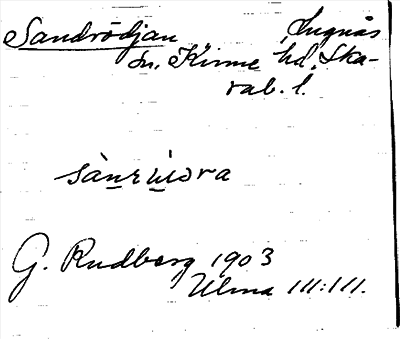 Sandrödjan Lugnås
sn, Kinne hd, Ska-
rab. l.
G. Rudberg 1903
Ulma 111:111.